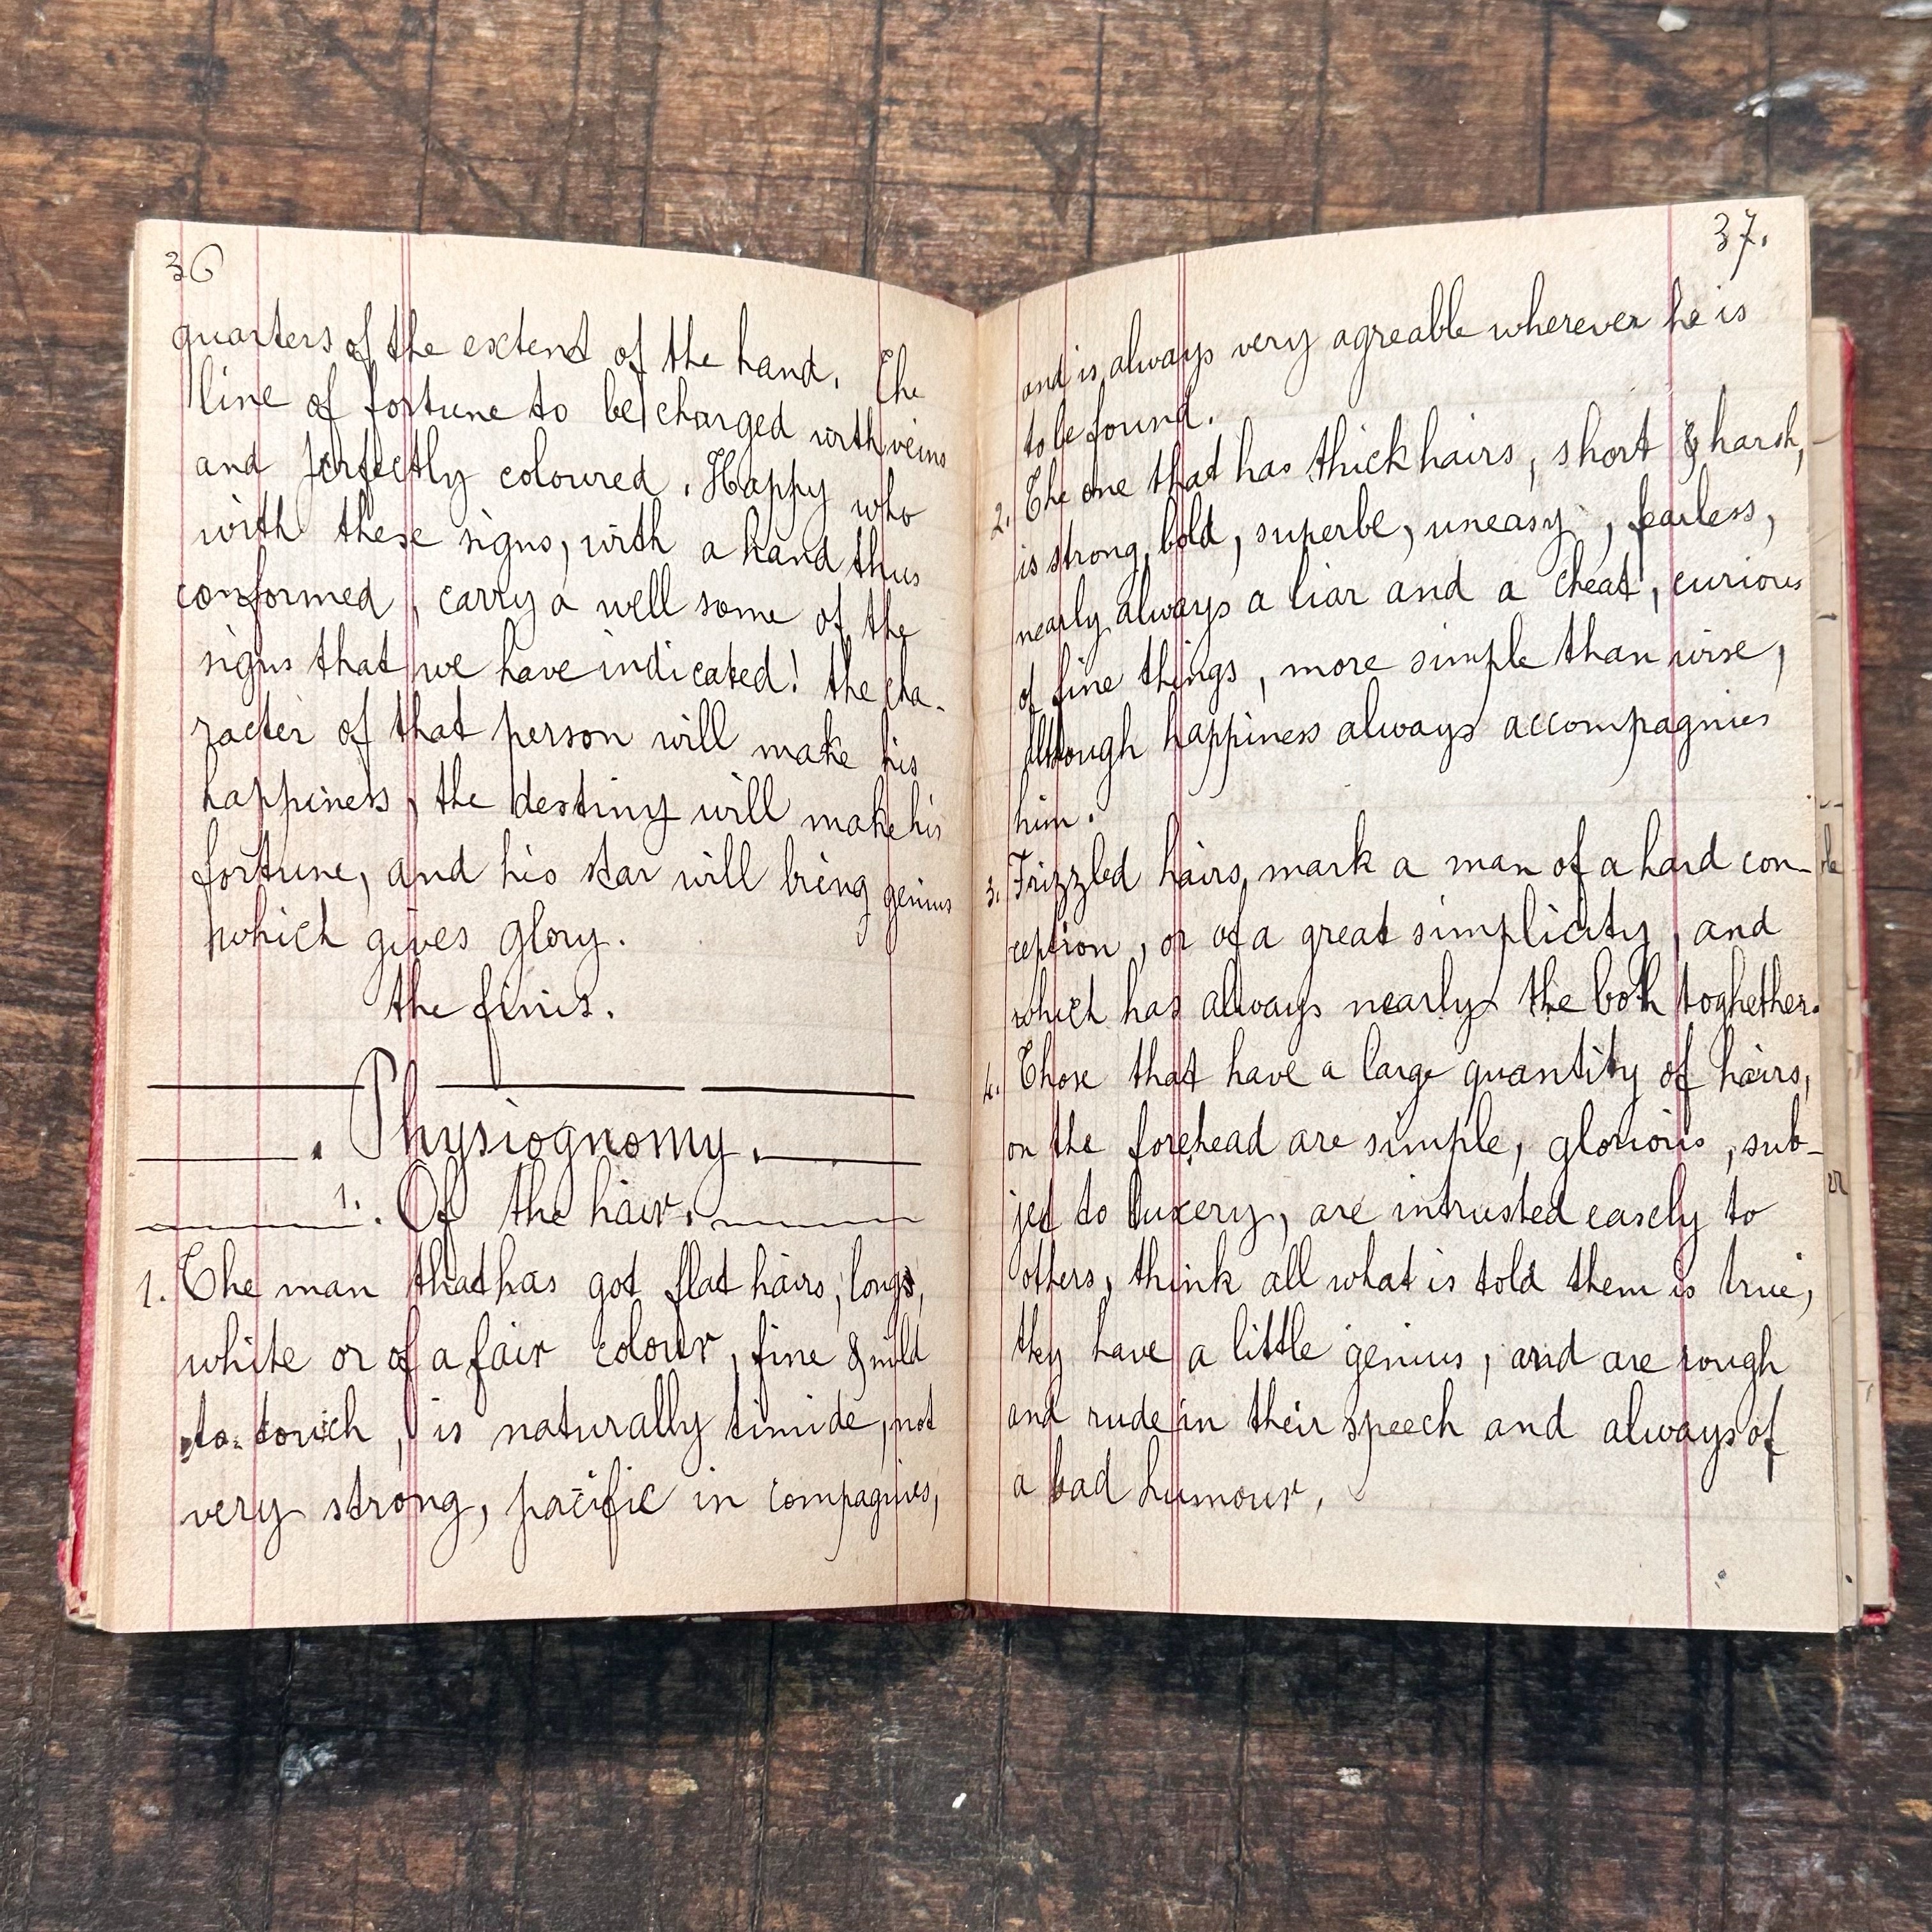 36
quarters of the extend of the hand. The
line of fortune to be charged with veins
and perfectly coloured. Happy who
with these signs, with a hand thus
conformed, carry a well some of the
signs that we have indicated! the cha-
racter of that person will make his
happiness, the destiny will make his
fortune, and his star will bring genius
which gives glory.
the finis.
Physiognomy.
1. Of the hair.
1. The man that has got flat hairs, longs,
white or of a fair colour, fine & mild
to touch, is naturally timide, not
very strong, pacific in compagnies,
37.
and is always very agreable wherever he is
to be found.
2. The one that has thick hairs, short & harsh,
is strong, bold, superbe, uneasy, fearless,
nearly always a liar and a cheat, curious
of fine things, more simple than wise,
although happiness always accompagnies
him.
3. Frizzled hairs, mark a man of a hard con-
ception, or of a great simplicity, and
which has always nearly the both toghether.
4. Those that have a large quantity of hairs,
on the forehead are simple, glorious, sub-
ject to luxery, are intrusted easely to
others, think all what is told them is true,
they have a little genius, and are rough
and rude in their speech and always of
a bad humour.